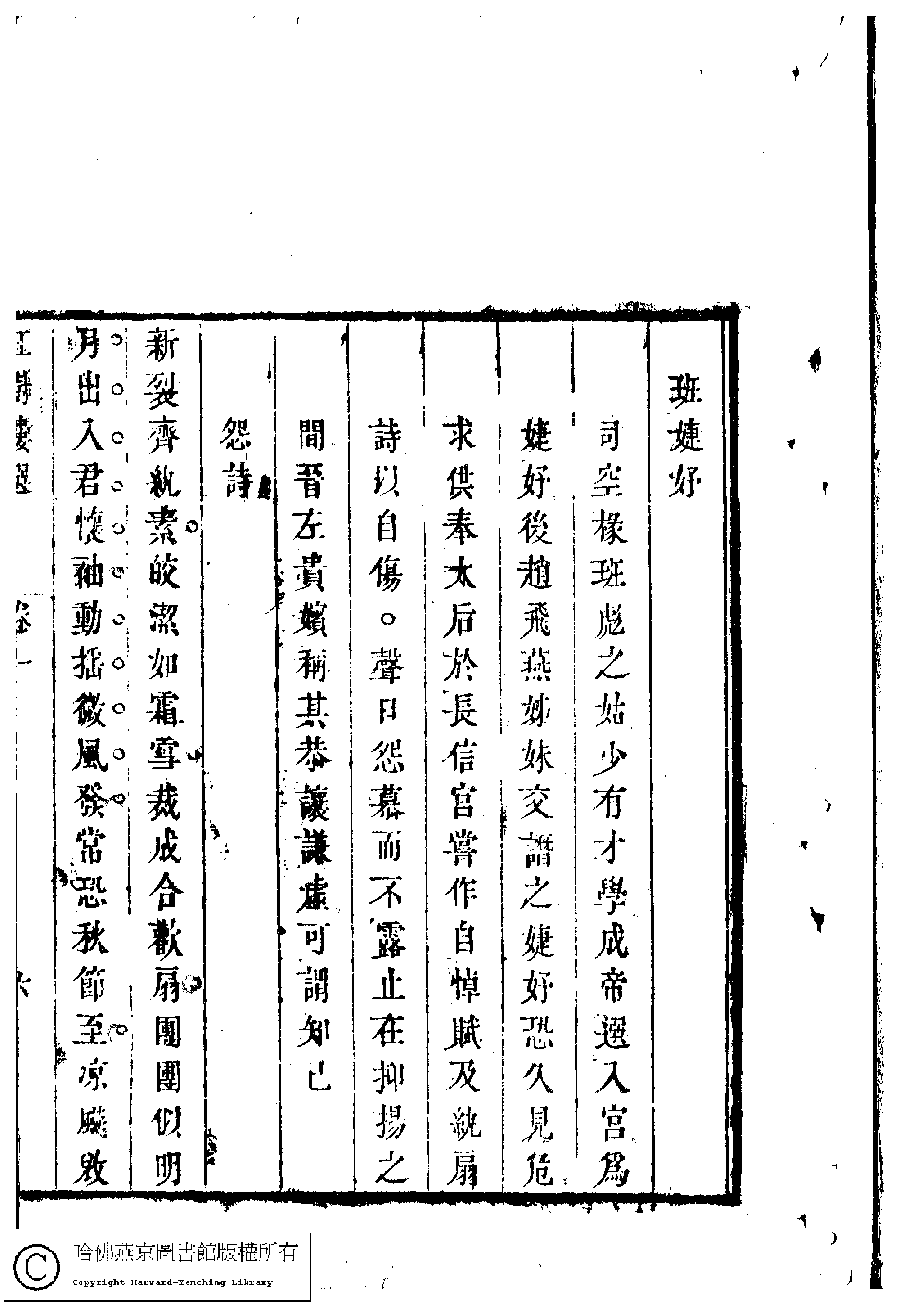 班婕妤
司空椽班彪之姑少有才學成帝選入宮爲
婕妤後趙飛燕姊妹交譖之婕妤恐久見危
求供奉太后於長信宮嘗作自悼賦及紈扇
詩以自傷。聲曰怨慕而不露止在抑揚之
間晉左貴嬪稱其恭讓謙虛可謂知己
怨詩
新裂齊紈素皎潔如霜雪裁成合歡扇團團似明
月出入君懷袖動搖微風發常恐秋節至凉飈敚
卷一
六
哈佛燕京圖書館版權所有
Copyright Harvard-Yenching Library